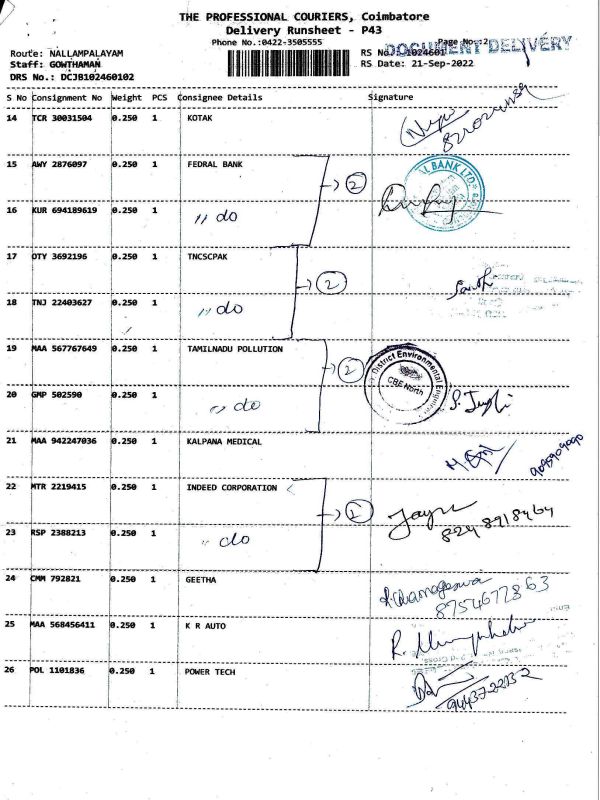 THE PROFESSIONAL COURIERS, Coimbatore
Delivery Runsheet - P43
Phone No.:0422-3505555
Page No.:2
DOCUMENT DELIVERY
Route: NALLAMPALAYAM
RS No.
1024601
Staff: GOWTHAMAN
RS Date: 21-Sep-2022
DRS No.: DCJB102460102
S No Consignment No Weight PCS Consignee Details Signature
14 TCR 30031504 0.250 1 KOTAK
15 AWY 2876097 0.250 1 FEDRAL BANK
2
L BANK LTD
16 KUR 694189619 0.250 1 ,, do
17 OTY 3692196 0.250 1 TNCSCPAK
2
18 TNJ 22403627 0.250 1 ,, do
19 MAA 567767649 0.250 1 TAMILNADU POLLUTION
2
District Environmental Engineer
CBE North
20 GMP 502590 0.250 1 ,, do
21 MAA 942247036 0.250 1 KALPANA MEDICAL
22 MTR 2219415 0.250 1 INDEED CORPORATION
23 RSP 2388213 0.250 1 ,, do
824 8918464
24 CMM 792821 0.250 1 GEETHA
8754672863
25 MAA 568456411 0.250 1 K R AUTO
26 POL 1101836 0.250 1 POWER TECH